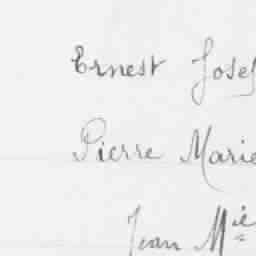 Ernest Josef
Pierre Marie
Jean Mie